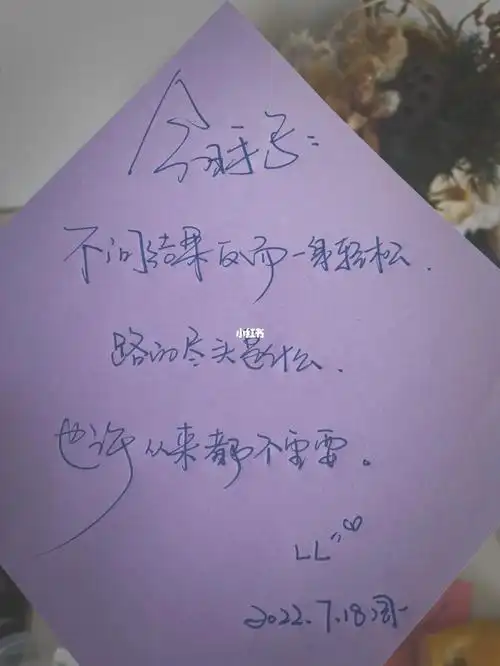 今日手写:
不问结果反而一身轻松.
小红书
路的尽头是什么.
也许从来都不重要。
LL
2022.7.18周一